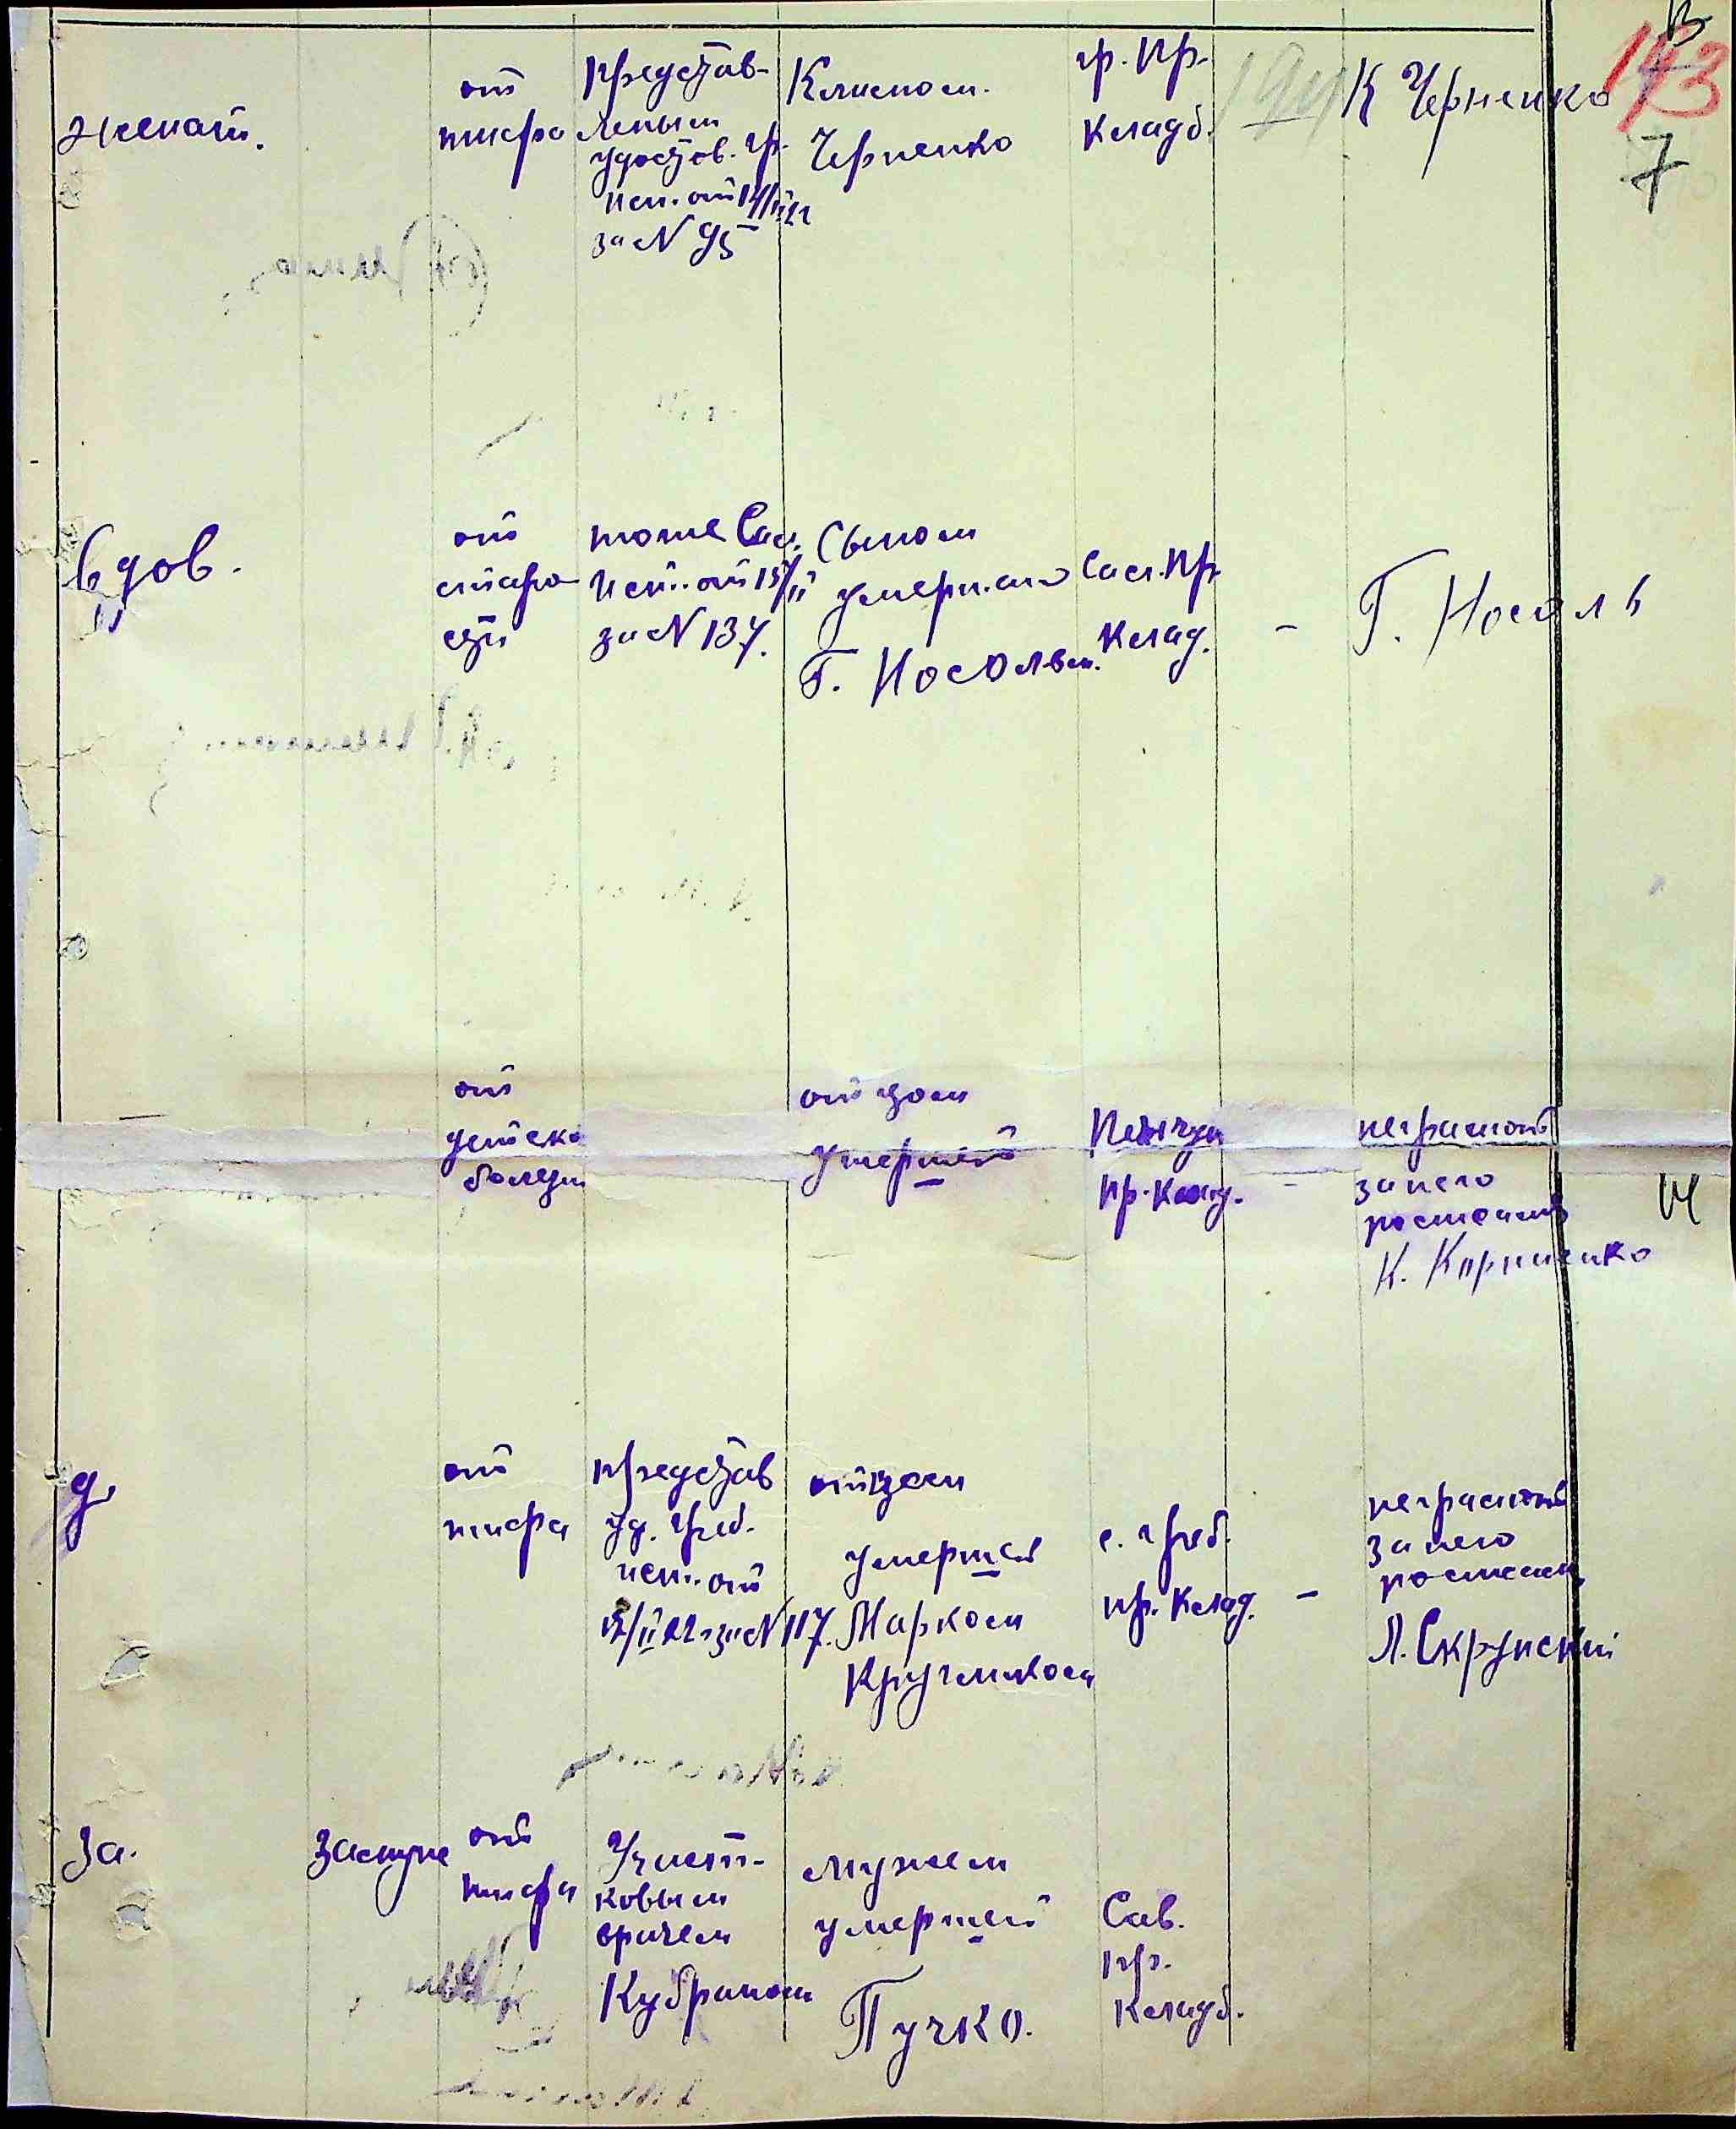 143
7
женат.
от
тифа
Представ-
леным
удостов. гр.
исп. от 14/II 22
за № 95
Климом
Черненко
гр. пр.
кладб.
К Черненко
вдов.
от
старо
сти
тоже Сас.
исп. от 15/II
за № 137.
Сыном
умерш.его
Г. Носольем.
Сасп. пр.
клад.
–
Г. Носоль
от
детско
болезн
отцом
умершей
пр. клад.
–
неграмотн
за него
росписал
К. Корниенко
14
д.
от
тифа
представ
уд. Греб.
исп. от
15/II 22 за № 117.
отцом
умершей
Марком
Кругликом
с. Греб.
пр. клад.
–
неграмотн
за него
росписал
Л. Скрунский
за.
замуже
от
тифа
Участ-
ковым
врачем
Кубраком
мужем
умершей
Пучко.
Сав.
пр.
кладб.